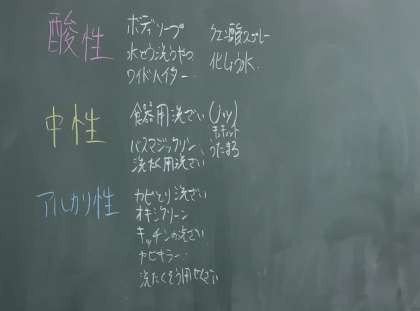 酸性
ボディソープ
水せう洗うやつ
ワイドハイター
クエン酸スプレー
化しょう水
中性
食器用洗ざい(Joy)
キュキュット
バスマジックリン
うたまろ
洗たく用洗ざい
アルカリ性
カビとり洗ざい
オキシクリーン
キッチンの洗ざい
カビキラー
洗たくそう用せんざい